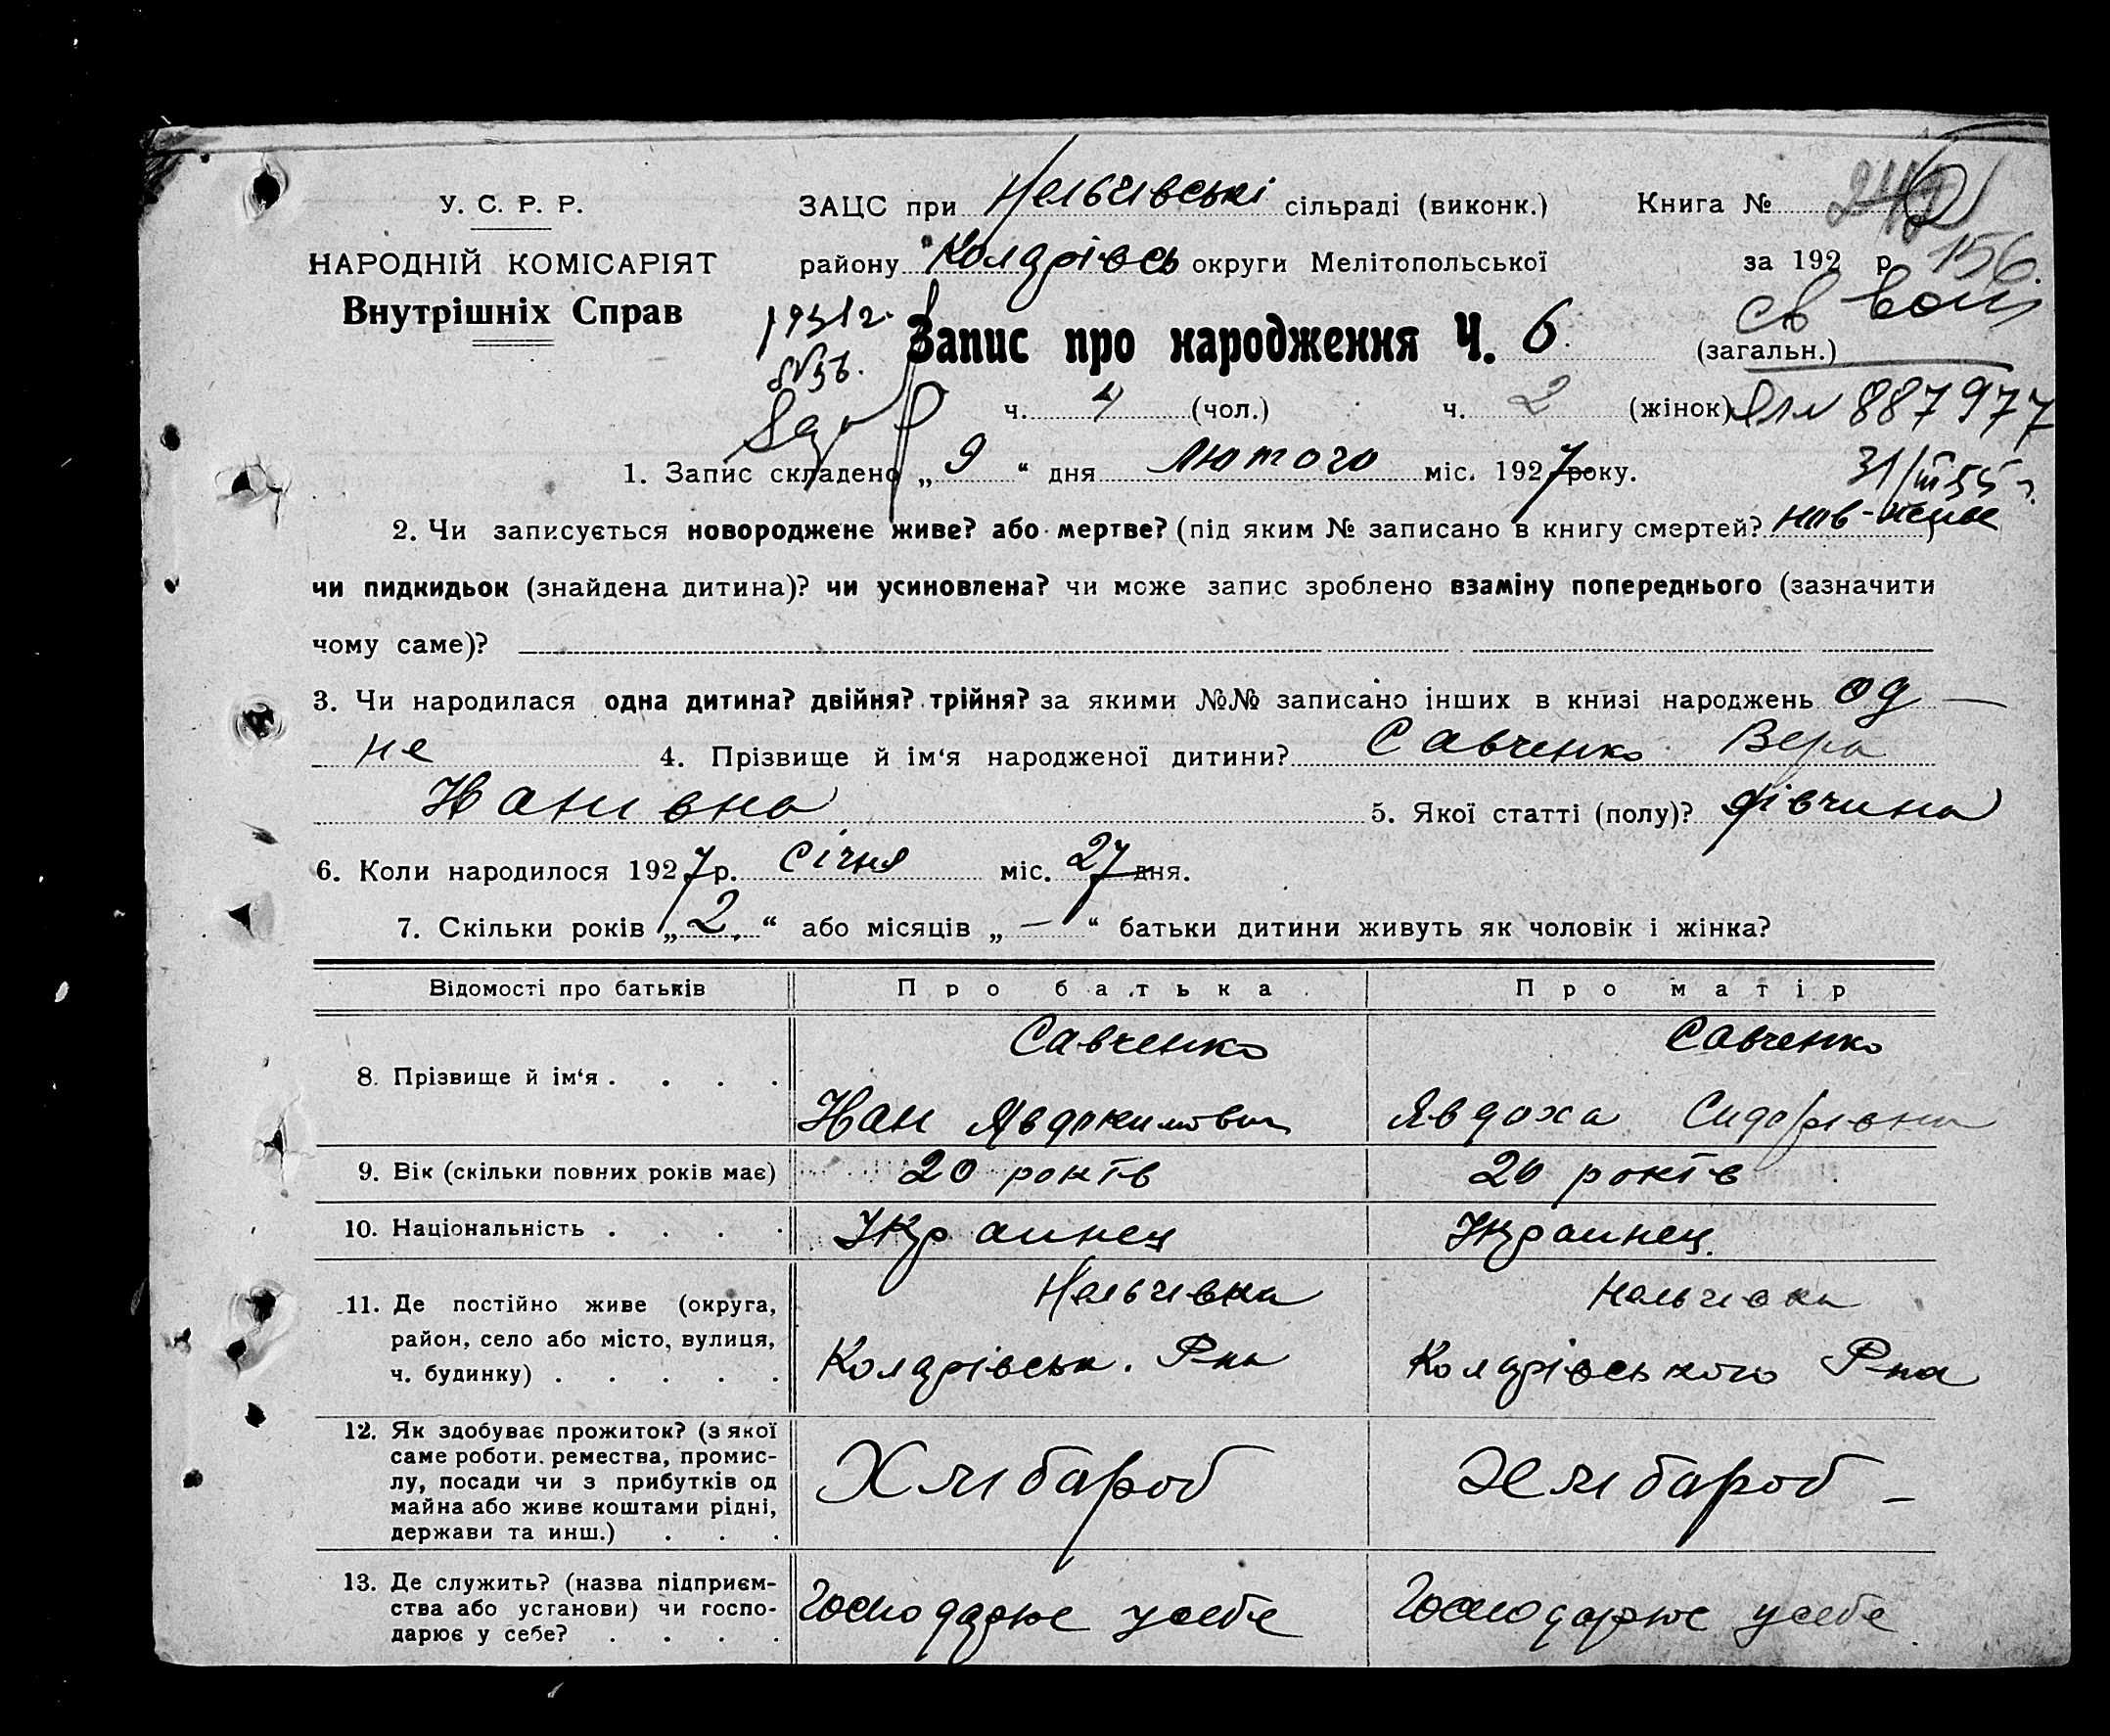 У. С. Р. Р.
НАРОДНІЙ КОМІСАРІЯТ
Внутрішніх Справ
ЗАЦС при сільраді (виконк.)
району округи Мелітопольської
Книга №
за 192 р.
156.
1931 г.
Запис про народження Ч. 6.
(загальн.)
ч. 4 (чол.) ч. 2 (жінок)
№ 887977
1. Запис складено „ 9 “ дня лютого міс. 1927 року.
31/III 55 г.
2. Чи записується новороджене живе? або мертве? (під яким № записано в книгу смертей?)
чи пидкидьок (знайдена дитина)? чи усиновлена? чи може запис зроблено взаміну попереднього (зазначити
чому саме)?
3. Чи народилася одна дитина? двійня? трійня? за якими №№ записано інших в книзі народжень од—
не 4. Прізвище й ім‘я народженої дитини? Савченко Вера
Иванивна 5. Якої статті (полу)? дівчина
6. Коли народилося 1927 р. січня міс. 27 дня.
7. Скільки років „ 2 “ або місяців „ — “ батьки дитини живуть як чоловік і жінка?
Відомості про батьків Про батька Про матір
8. Прізвище й ім‘я . . . . Савченко Савченко
Иван Явдокимович Явдоха Сидорівна
9. Вік (скільки повних років має) 20 років 20 років
10. Національність . . . . Украинец Украинец
11. Де постійно живе (округа,
район, село або місто, вулиця,
ч. будинку) . . . . . Р-на Р-на
12. Як здобуває прожиток? (з якої
саме роботи. ремества, промис-
лу, посади чи з прибутків од
майна або живе коштами рідні,
держави та инш.) . . . Хлибароб Хлибароб –
13. Де служить? (назва підприєм-
ства або установи) чи госпо-
дарює у себе? . . . . Господарює усебе Господарює усебе